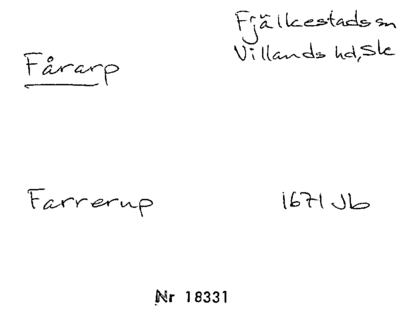 Fjälkestads sn
Villands hd, Sk
Fårarp
Farrerup 1671 Jb
Nr 18331